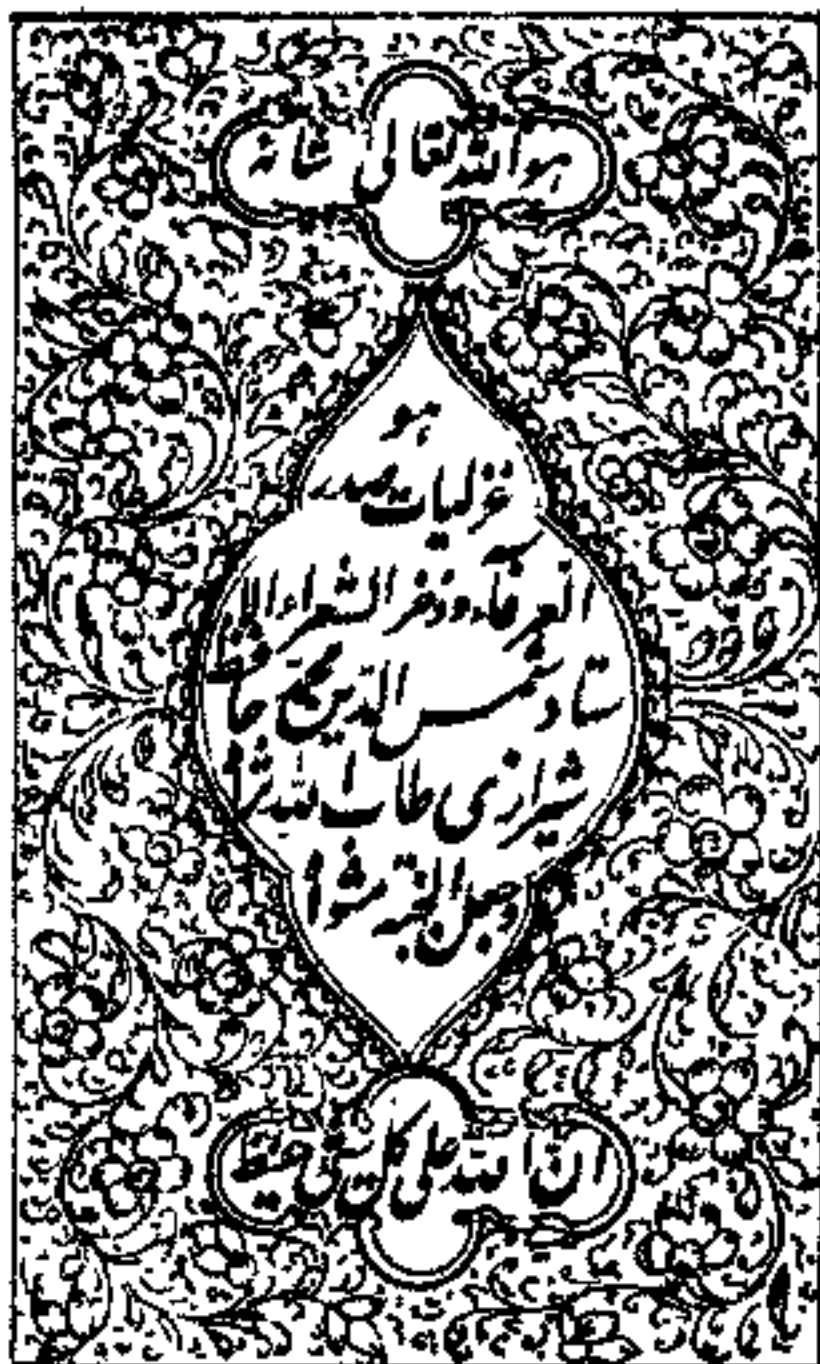 هو الله تعالی شانه
هو
غزلیات صدر
العرفآء و فخر الشعراء الا
ستاد شمس الدین محمد حافظ
شیرازی طاب الله ثرا
وجعل الجنة مثوا
ان الله علی کل شی حفیظ